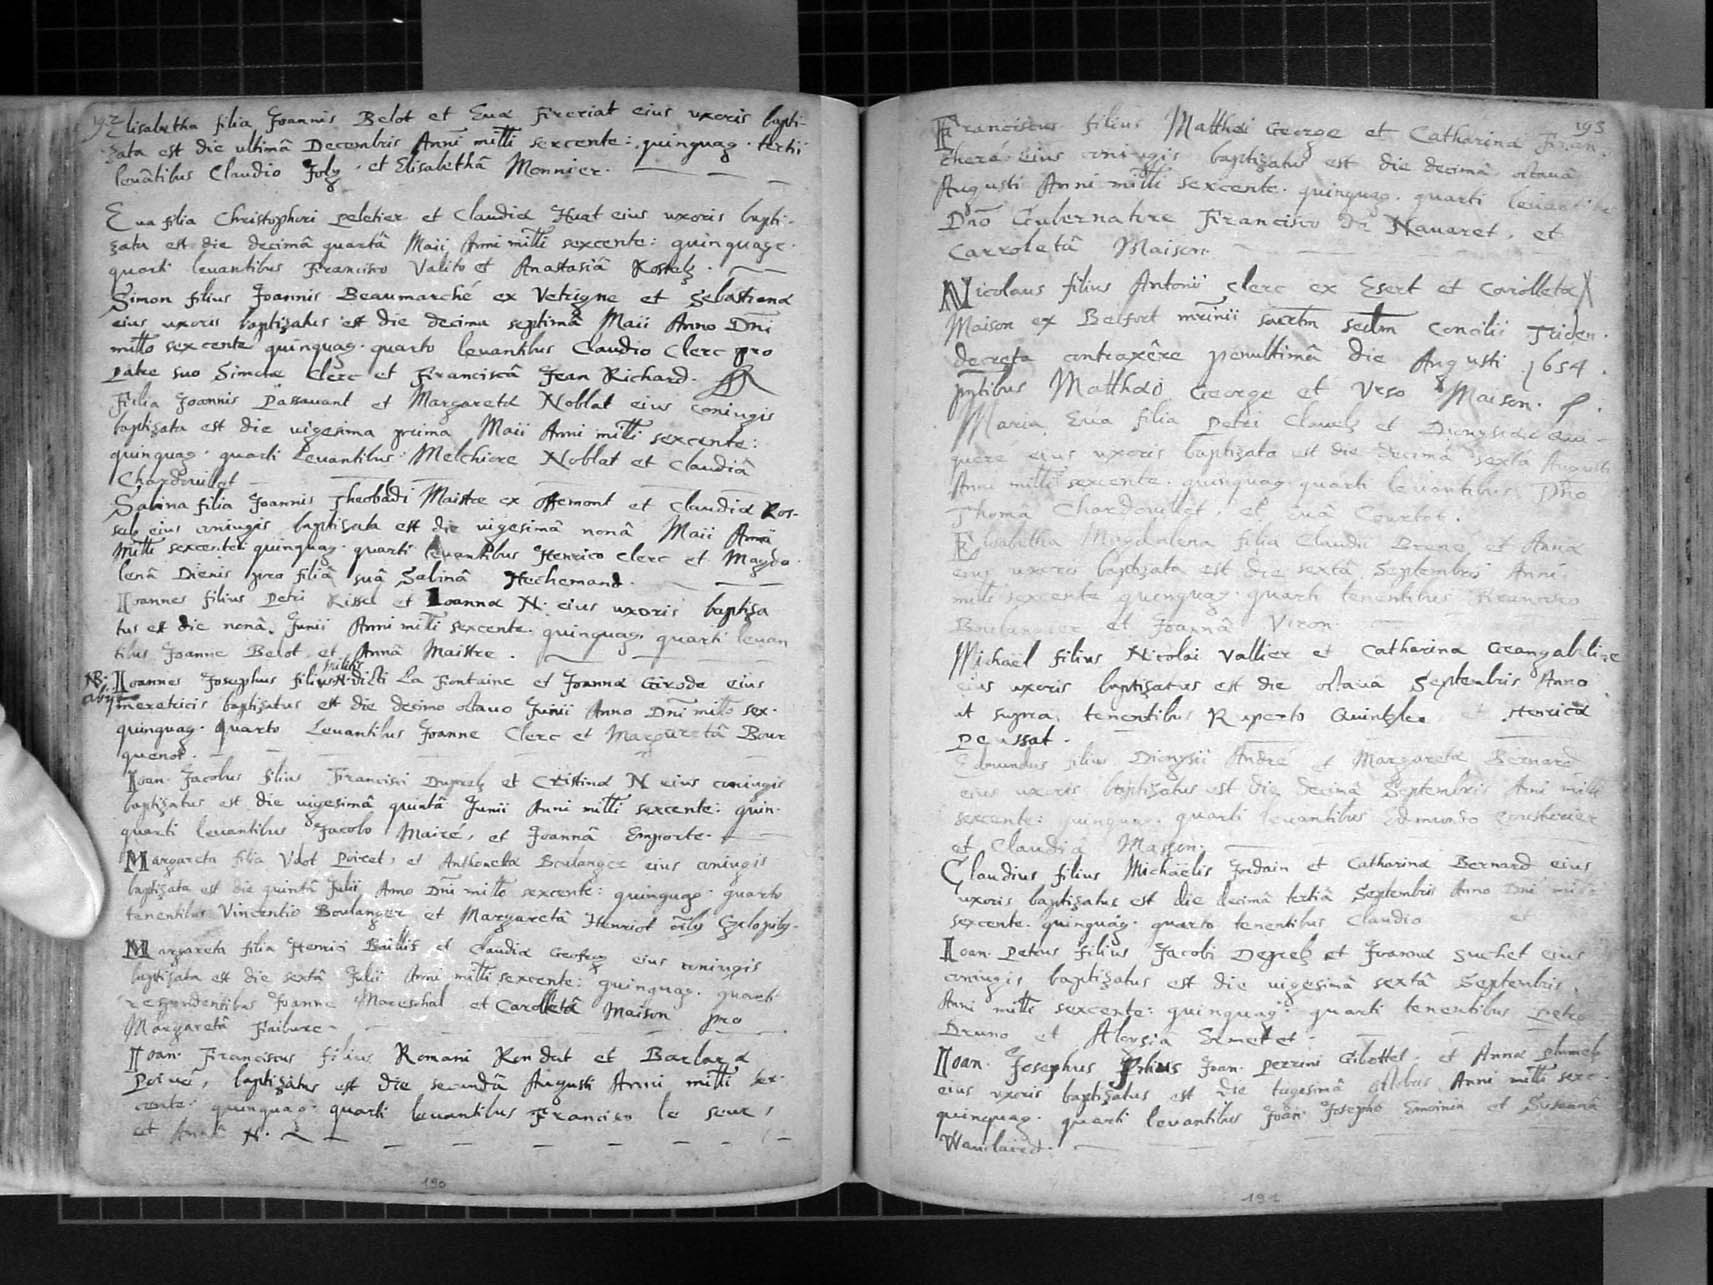 192
Elisabetha filia Joannis Belot et Eua Fireriat eius uxoris bapti-
zata est die ultimâ Decembris Anni milli sexcente: quinquag. tertii
leuâtibus Claudio Joly. et Elisabethâ Monnier.
Eua filia Christophori Peletier et Claudiæ Huat eius uxoris bapti-
zata est die decimâ quartâ Maii Anni milli sexcente: quinquage.
quarti leuantibus Francisco Valito et Anastasiâ Rosselz.
Simon filius Joannis Beaumarché ex Vetrigne et Sebastiana
eius uxoris baptizatus est die decima septimâ Maii Anno Dñi
millo sexcente quinquag. quarto leuantibus Claudio Clerc pro
patre suo Simone Clerc et Franciscâ Jean Richard.
Filia Joannis Passauant et Margareta Noblat eius coniugis
baptizata est die uigesima prima Maii Anni milli sexcente:
quinquag. quarti Leuantibus Melchiore Noblat et Claudiâ
Chardouillet
Sabina filia Joannis Theobaldi Maistre ex Offemont et Claudiæ Ros-
selz eius coniugis baptizata est die uigesimâ nonâ Maii Anni
Milli sexcente: quinquag. quarti leuantibus Henrico Clerc et Magda-
lenâ Dienis pro filiâ suâ Sabinâ Hechemand.
Joannes filius Petri Rissel et Joannæ N. eius uxoris baptiza
tus est die nonâ Junii Anni milli sexcente. quinquag. quarti leuan
tibus Joanne Belot et Annâ Maistre.
NB. Joannes Josephus filius N. dicti La Fontaine et Joannæ Girode eius
militis
meretricis baptizatus est die decimo octauo Junii Anno Dñi millo sex.
quinquag. quarto Leuantibus Joanne Clerc et Margaretâ Bour
quenot.
Joan. Jacobus filius Francisci Duprelz et Cristinæ N eius coniugis
baptizatus est die uigesimâ quintâ Junii Anni milli sexcente: quin.
quarti leuantibus Jacobo Mairé, et Joannâ Emporte.
Margareta filia Udot Poiret, et Anthonetta Boulanger eius coniugis
baptizata est die quintâ Julii Anno Dñi millo sexcente: quinquag. quarto
tenentibus Vincentio Boulanger et Margaretâ Henriot
Margareta filia Henrici Baillif et Claudiæ eius coniugis
baptizata est die sextâ Julii Anni milli sexcente: quinquag. quarti
respondentibus Joanne Mareschal et Carolletâ Maison pro
Margaretâ Faibure.
Joan. Franciscus filius Romani et Barbaræ
baptizatus est die secundâ Augusti Anni milli sex-
cente: quinquag. quarti leuantibus Francisco le seur,
et Annâ N.
190
193
Franciscus filius Matthæi George et Catharinæ
eius coniugis baptizatus est die decimâ octauâ
Augusti Anni milli sexcente. quinquag. quarti leuantibus
Dño Gubernatore Francisco de Nauaret, et
Carroletâ Maison.
Nicolaus filius Antonii Clerc ex Esert et Carolleta
Maison ex Belfort mrinii sacrtm sedm Concilii Triden.
decreta contraxêre penultimâ die Augusti 1654.
pntibus Matthæo George et Urso Maison.
Maria Eua filia Petri Clauelz et Dionysiæ
eius uxoris baptizata est die decimâ sextâ Augusti
Anni milli sexcente. quinquag. quarti leuantibus Dño
Thomâ Chardouillet, et Euâ Courtot.
Elisabetha Magdalena filia Claudii et Annæ
eius uxoris baptizata est die sextâ Septembris Anni
milli sexcente quinquag. quarti tenentibus Francisco
Boulangier et Joannâ Viron.
Michaël filius Nicolai Vallier et Catharinæ
eius uxoris baptizatus est die octauâ Septembris Anno
ut supra, tenentibus Ruperto et Henrica
Edmundus filius Dionysii André et Margareta Bernard
eius uxoris baptizatus est die decimâ Septembris Anni milli
sexcente: quinquag. quarti leuantibus Edmundo
et Claudiâ Masson.
Claudius filius Michaëlis Jordain et Catharinæ Bernard eius
uxoris baptizatus est die decimâ tertiâ Septembris Anno Dñi millo
sexcente. quinquag. quarto tenentibus Claudio et
Joan. Petrus filius Jacobi Deprelz et Joannæ Suchet eius
coniugis baptizatus est die uigesimâ sextâ Septembris.
Anni milli sexcente: quinquag. quarti tenentibus Petro
Bruno et Aloysia
Joan. Josephus filius Joan. Perrini Gibottet. et Annæ Plumelz
eius uxoris baptizatus est die octobris Anni milli sexc.
quinquag. quarti leuantibus Joan. Josepho et Susannâ
191